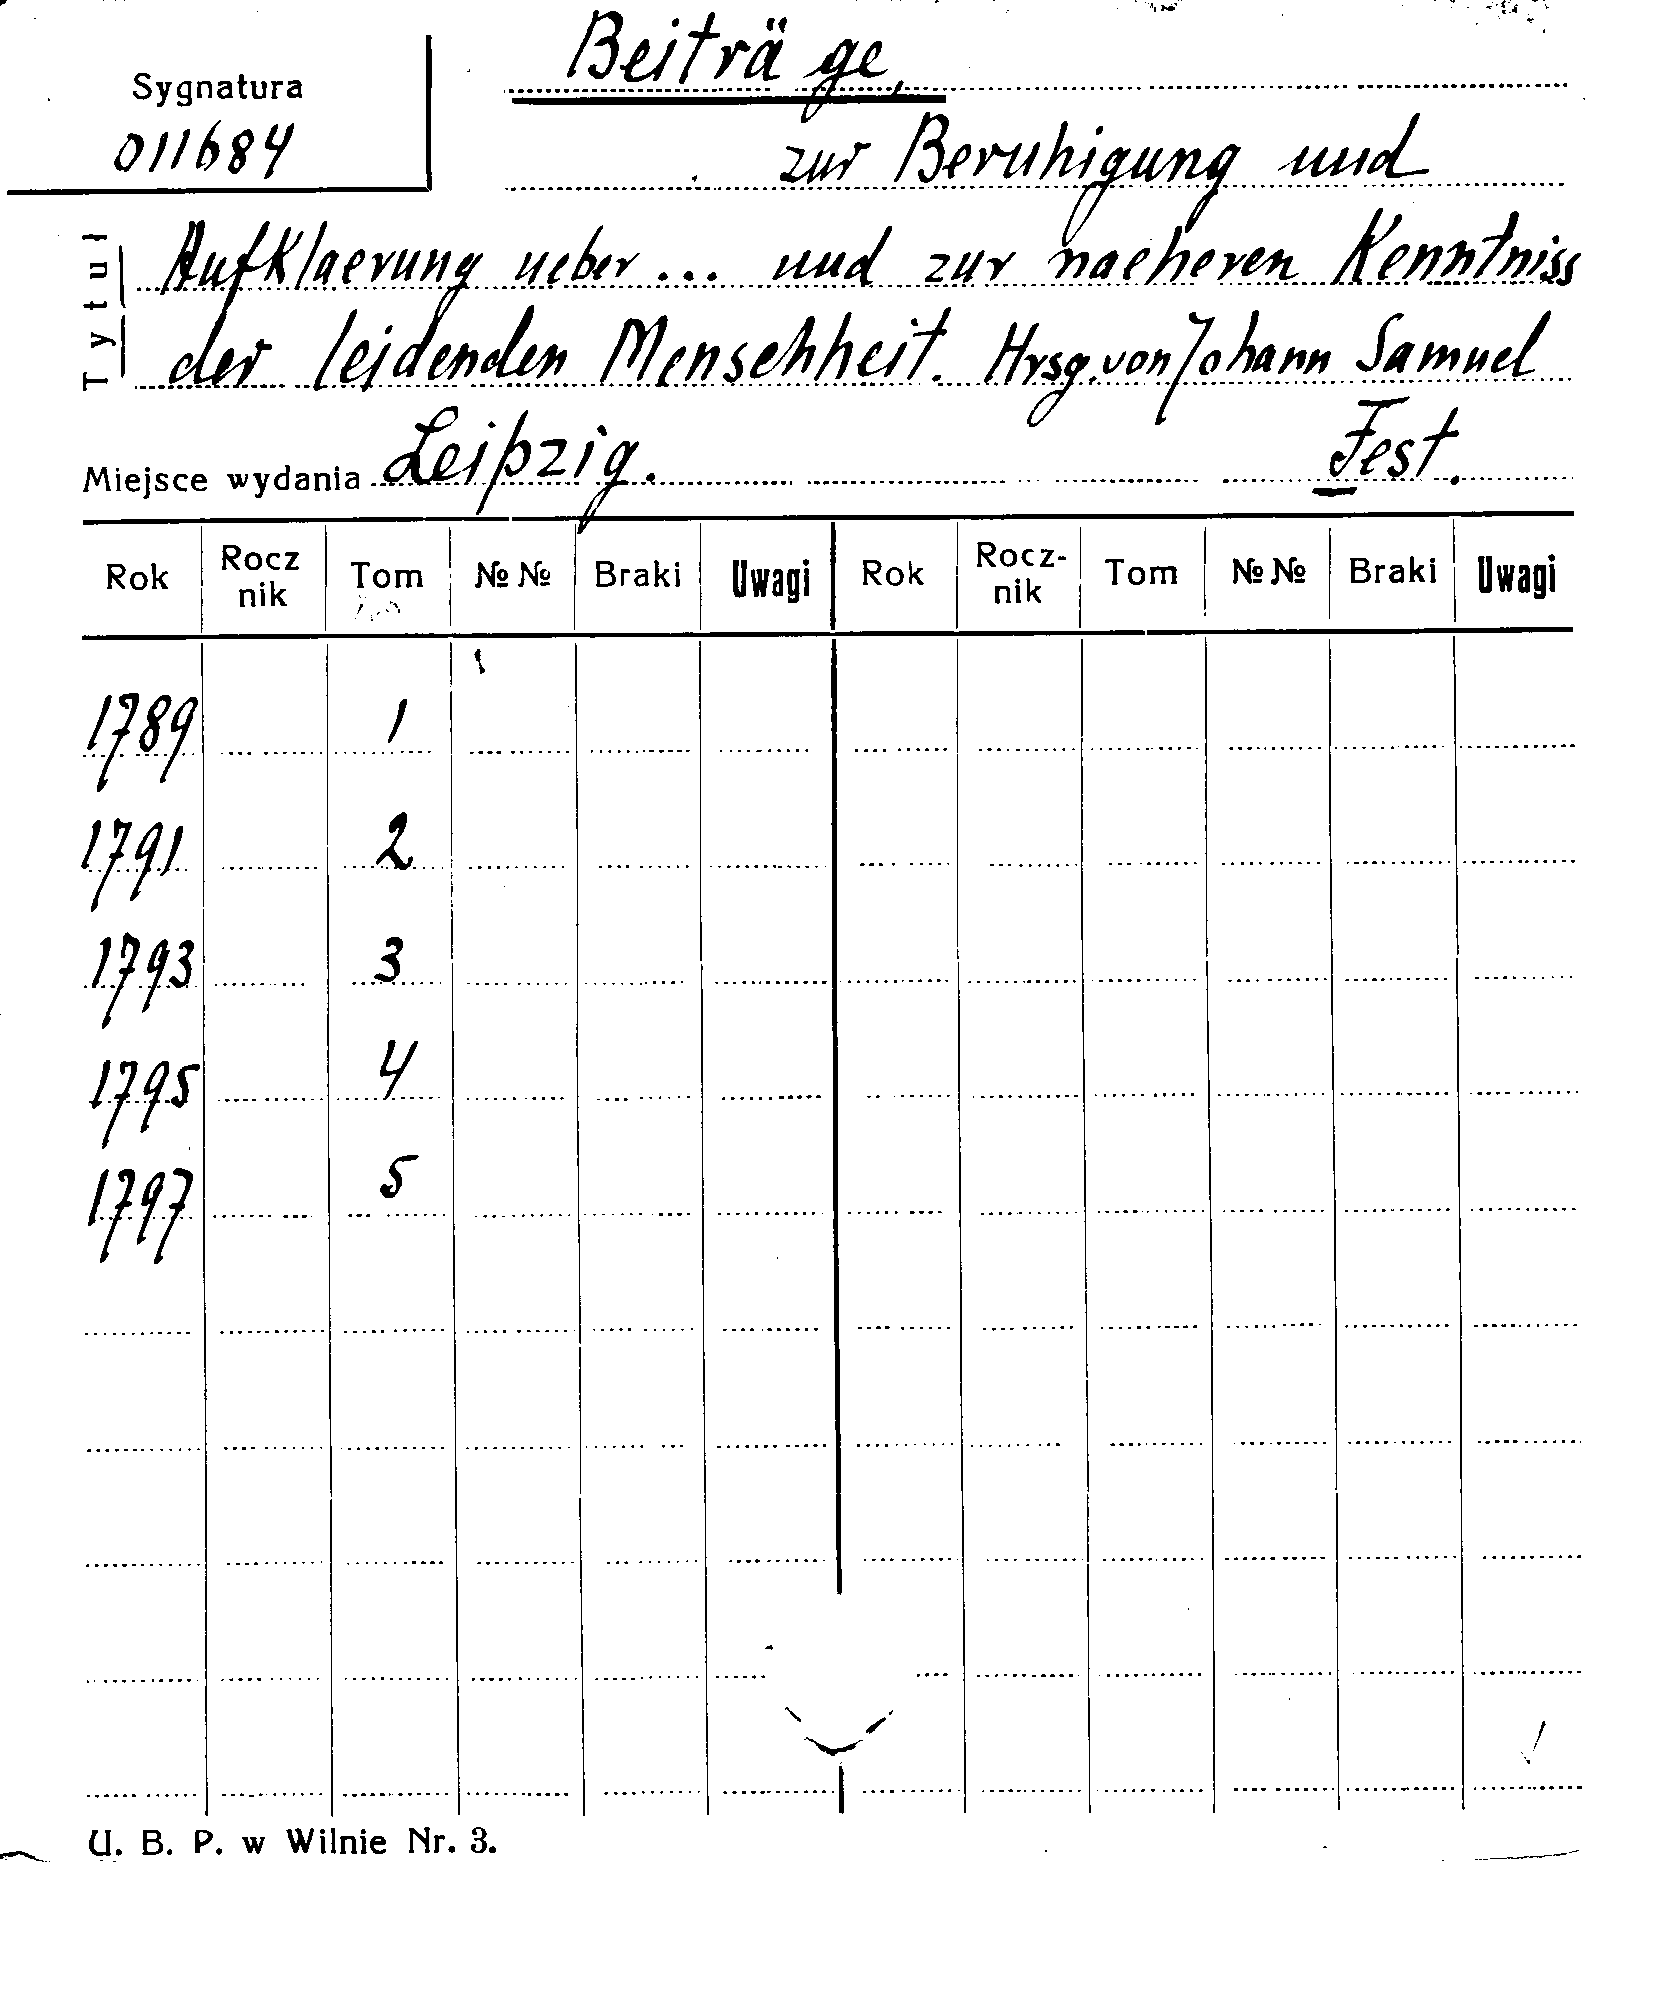 Sygnatura
011684
Beiträge,
zur Beruhigung und
Tytuł
Aufklaerung ueber ... und zur naeheren Kenntniss
der leidenden Menschheit. Hrsg. von Johann Samuel
Fest.
Miejsce wydania Leipzig.
Rok Rocznik Tom №№ Braki Uwagi Rok Rocz-nik Tom №№ Braki Uwagi
1789 1
1791 2
1793 3
1795 4
1797 5
U. B. P. w Wilnie Nr. 3.